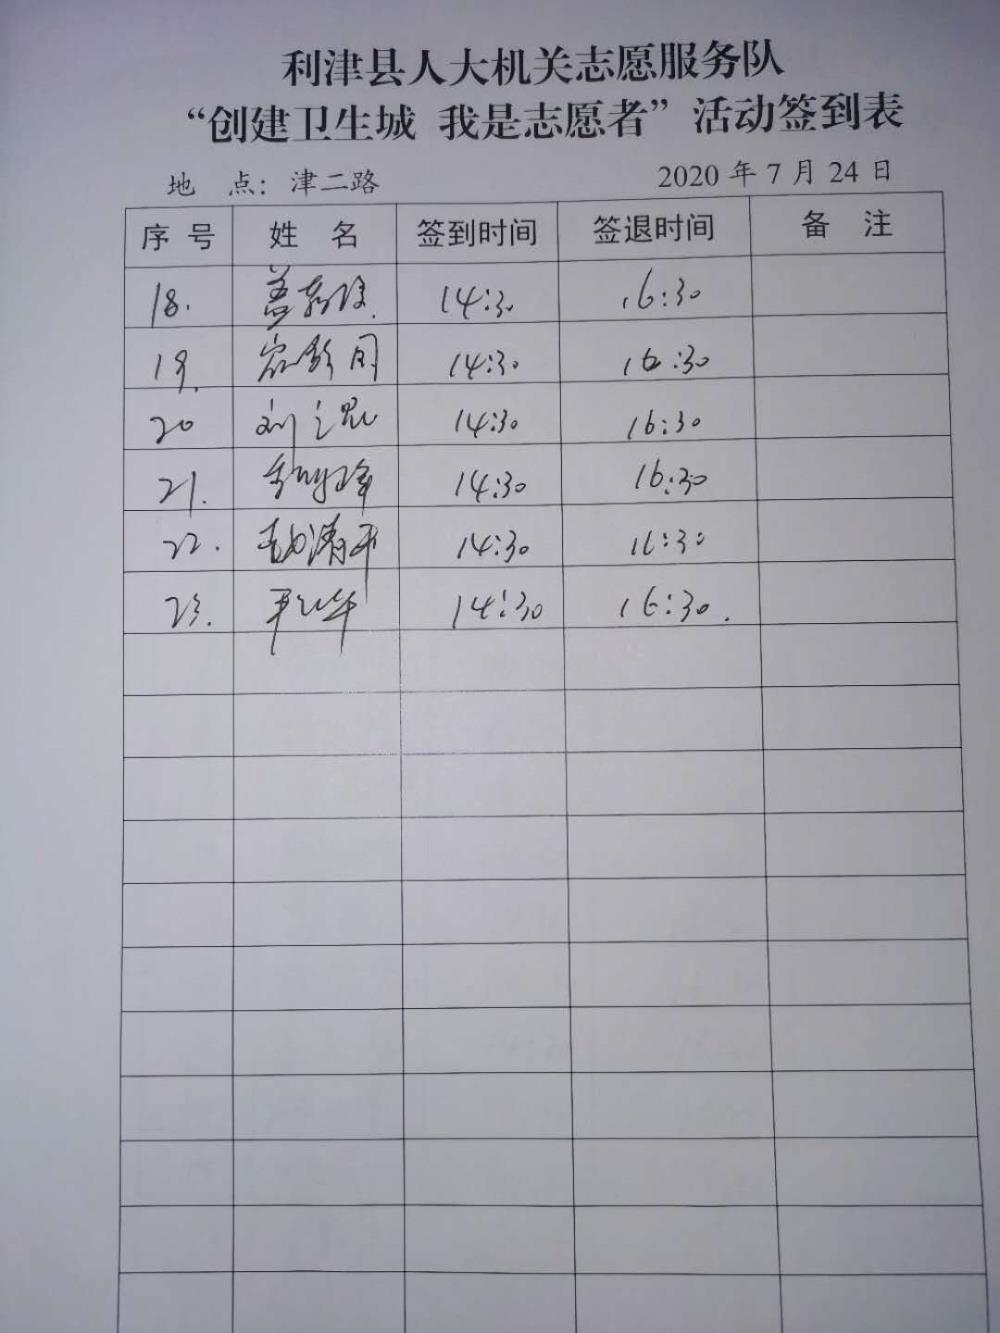 利津县人大机关志愿服务队
“创建卫生城 我是志愿者”活动签到表
地 点：津二路 2020 年 7 月 24 日
序 号 姓 名 签到时间 签退时间 备 注
18. 14:30 16:30
19. 14:30 16:30
20 刘 14:30 16:30
21. 14:30 16:30
22. 清平 14:30 16:30
23. 14:30 16:30.